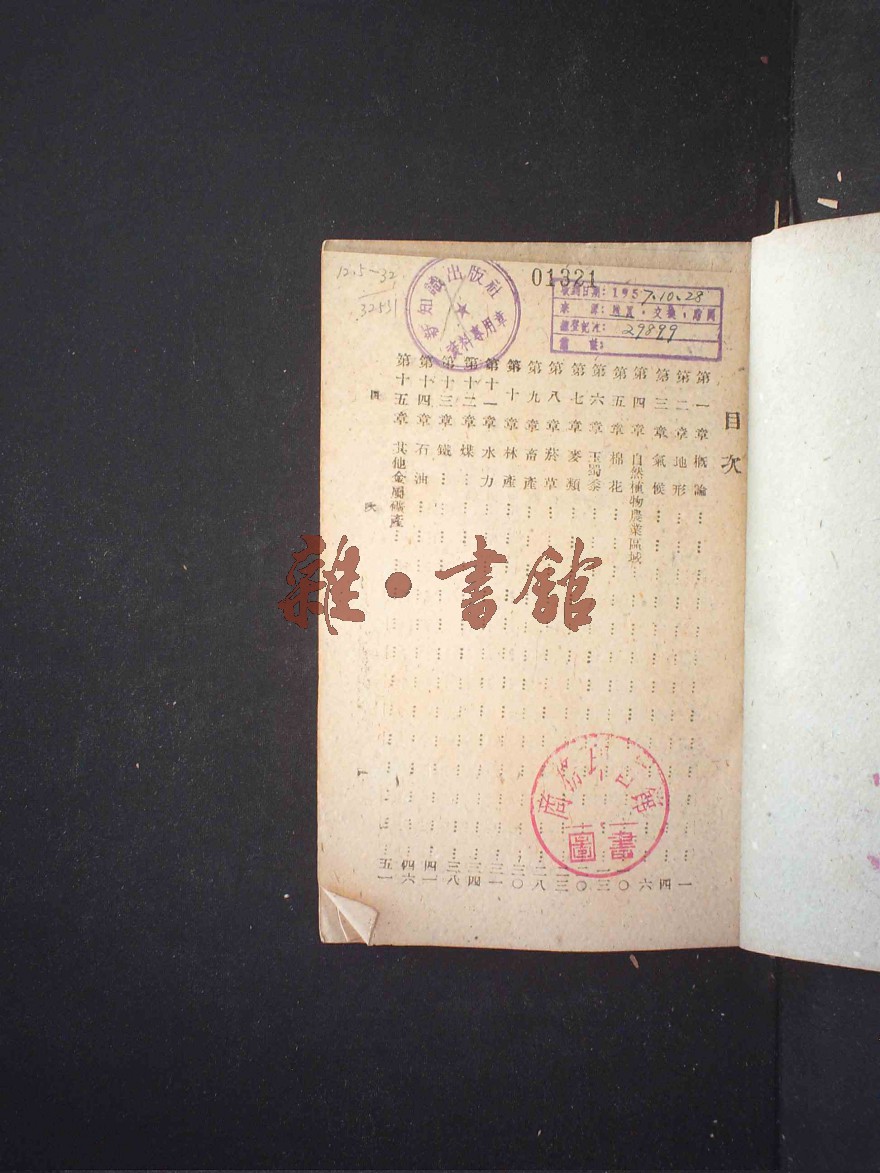 目次
第一章 概論 一
第二章 地形 四
第三章 氣候 六
第四章 自然植物農業區域
第五章 棉花
第六章 玉蜀黍
第七章 麥類
第八章 菸草
第九章 畜產
第十章 林產 三〇
第十一章 水力
第十二章 煤 三四
第十三章 鐵 三八
第十四章 石油
第十五章 其他金屬礦產 五一
目次
01321
12.5-32
32531
新知識出版社
資料專用章
收到日期: 1957.10.28
來源:
總登記號: 29899
圖書
雜·書館